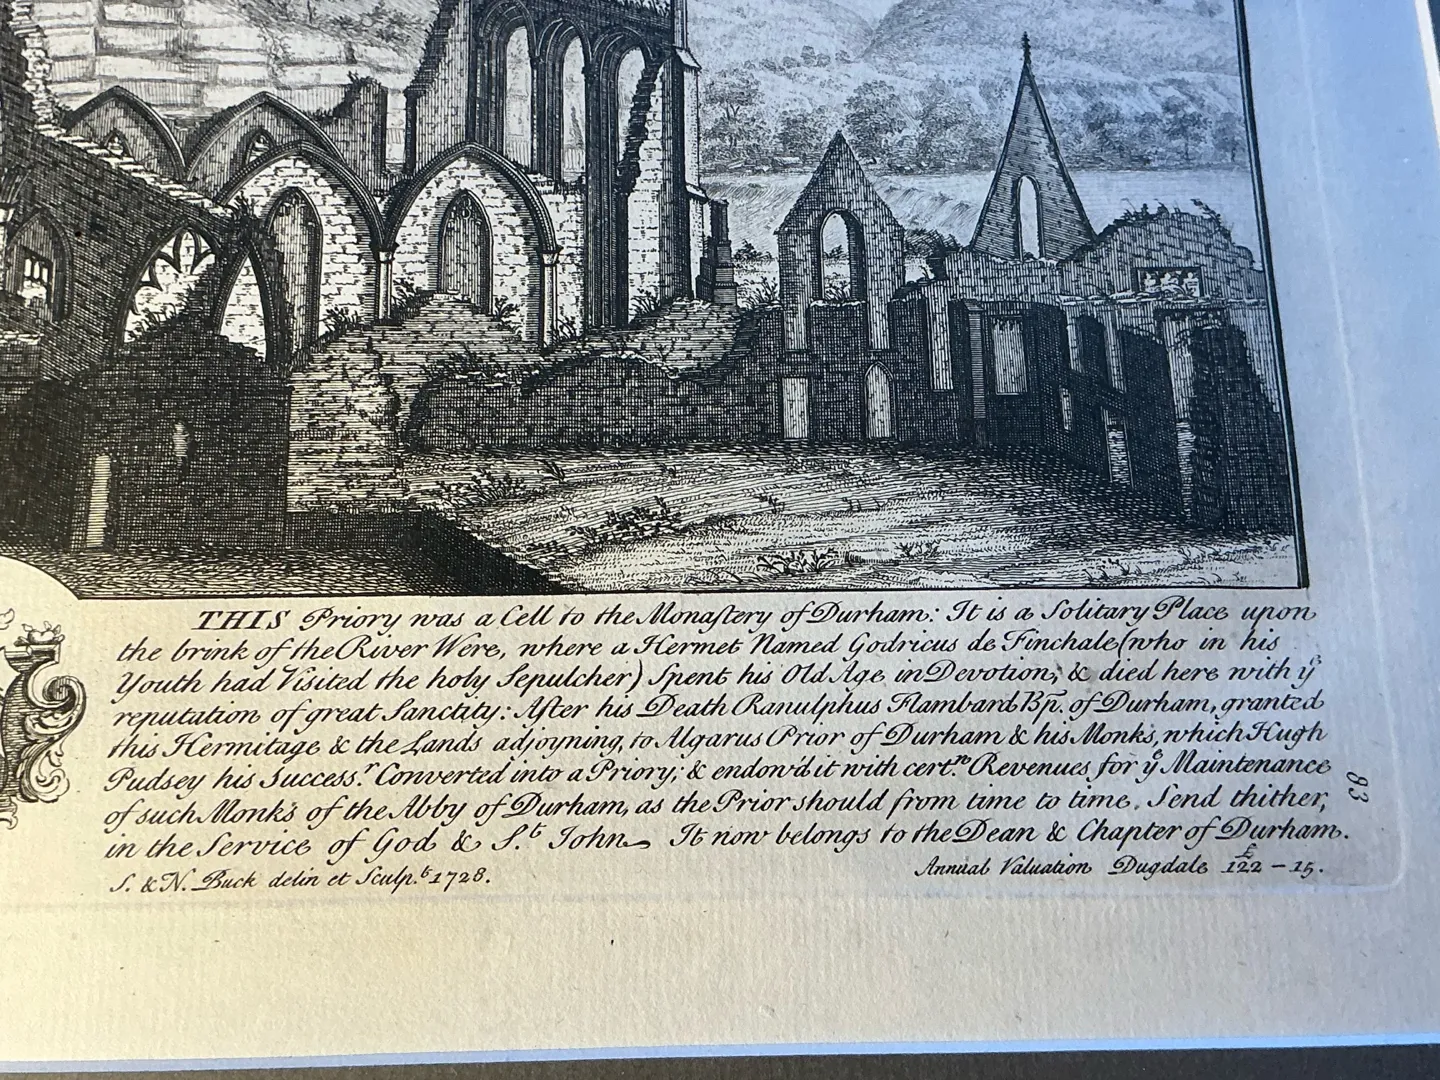 THIS Priory was a Cell to the Monaſtery of Durham: It is a Solitary Place upon
the brink of the River Were, where a Hermet Named Godricus de Finchale (who in his
Youth had Visited the holy Sepulcher) Spent his Old Age in Devotion, & died here with yᵉ
reputation of great Sanctity: After his Death Ranulphus Flambard Bp. of Durham, granted
this Hermitage & the Lands adjoyning, to Algarus Prior of Durham & his Monks, which Hugh
Pudsey his Success.ʳ Converted into a Priory; & endow'd it with cert.ⁿ Revenues for yᵉ Maintenance
of such Monks of the Abby of Durham, as the Prior should from time to time, Send thither,
in the Service of God & S.ᵗ John. It now belongs to the Dean & Chapter of Durham.
S. & N. Buck delin et Sculp.ᵗ 1728.
Annual Valuation Dugdale £122 – 15.
83